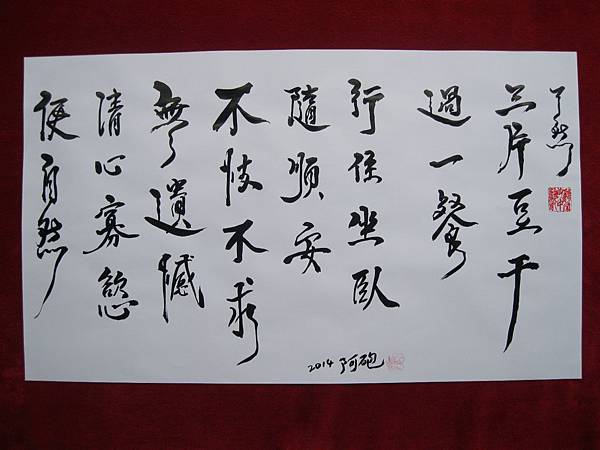 了然
三片豆干
過一餐
行住坐臥
隨順安
不忮不求
無遺憾
清心寡慾
便自然
2014 阿砲